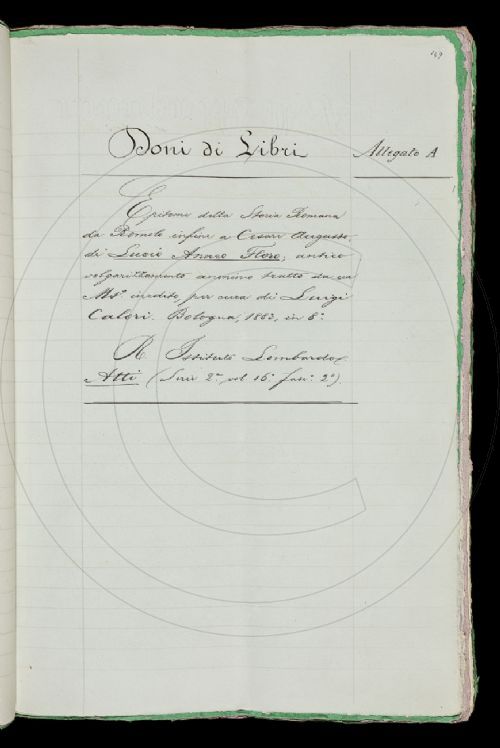 149
Doni di Libri
Allegato A
Epitome della Storia Romana
da Romolo infino a Cesare Augusto
di Lucio Anneo Floro, antico
volgarizzamento anonimo tratto da un
Ms.° inedito, per cura di Luigi
Calori. Bologna, 1883, in 8.°
R. Istituto Lombardo
Atti (Serie 2.ª vol 16.° fasc.° 2.°)